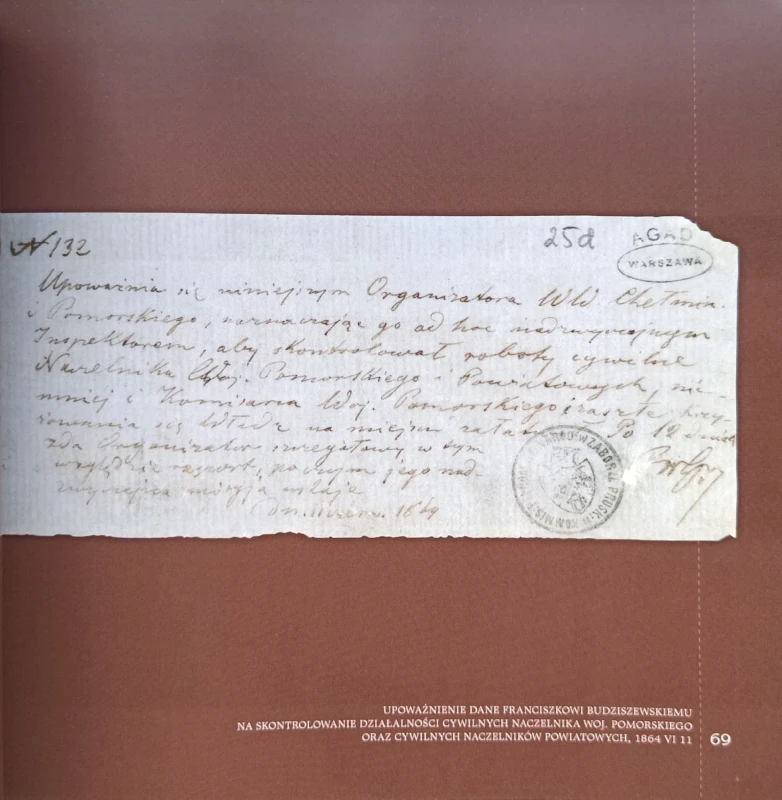 N 132
25d
AGAD
WARSZAWA
Upoważnia się niniejszym Organizatora Wld Chełmin.
i Pomorskiego, naznaczając go ad hoc nadzwyczajnym
Inspektorem, aby skontrolował roboty cywilne
Naczelnika Woj. Pomorskiego i Powiatowych, nie-
mniej i Komisarza Woj. Pomorskiego i zaszłe
się Władz na miejscu Po 12
zda Organizator szczegółowy w tym
względzie raport, poczym jego nad-
zwyczajna misyja ustaje
1864
UPOWAŻNIENIE DANE FRANCISZKOWI BUDZISZEWSKIEMU
NA SKONTROLOWANIE DZIAŁALNOŚCI CYWILNYCH NACZELNIKA WOJ. POMORSKIEGO
ORAZ CYWILNYCH NACZELNIKÓW POWIATOWYCH, 1864 VI 11
69